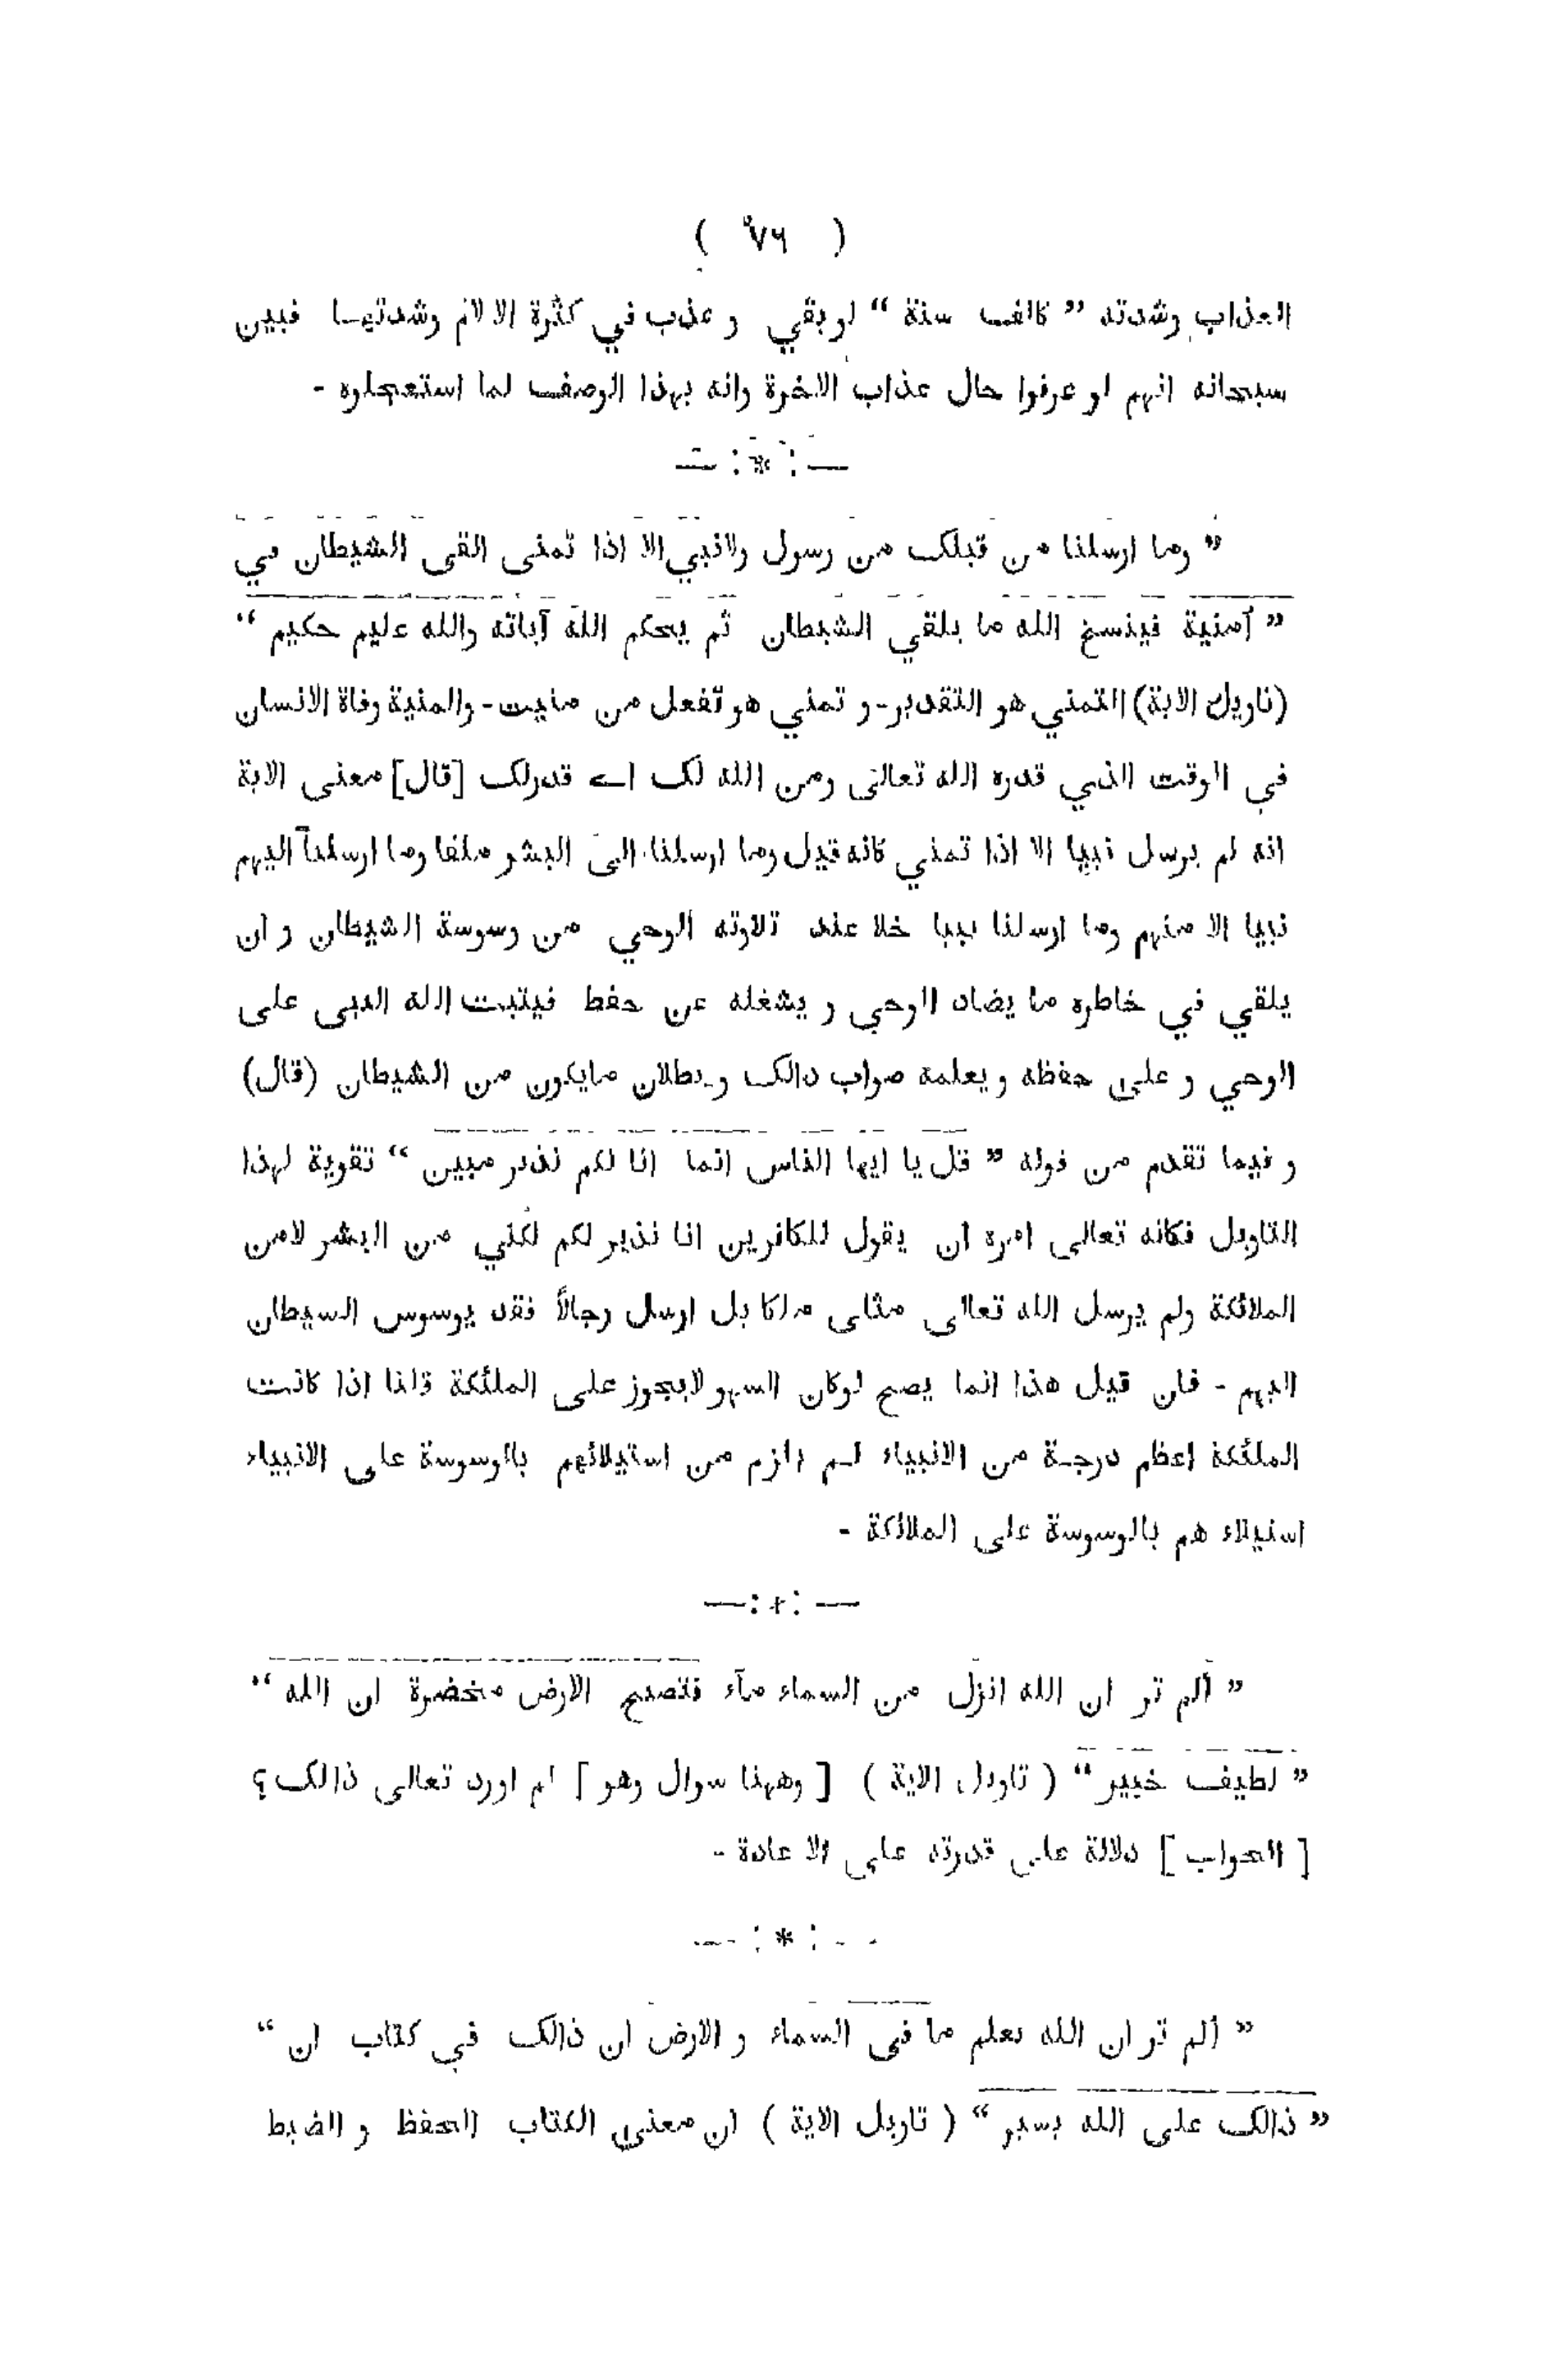 ( ٧٦ )
العذاب وشدته ” كالف سنة “ لو بقي و عذب في كثرة الالام وشدتها فبين
سبحانه انهم لو عرفوا حال عذاب الاخرة وانه بهذا الوصف لما استعجلوه -
—:*:—
” وما ارسلنا من قبلك من رسول ولانبي الا اذا تمنى القى الشيطان في
” آمنية فينسخ الله ما يلقي الشيطان ثم يحكم الله آياته والله عليم حكيم “
(تاويل الاية) التمني هو التقدير - و تمني هو تفعل من منيت - والمنية وفاة الانسان
في الوقت الذي قدره الله تعالى ومن الله لك اے قدرلك [قال] معنى الاية
انه لم يرسل نبيا الا اذا تمني كانه قيل وما ارسلنا الى البشر ملفا وما ارسلنا اليهم
نبيا الا منهم وما ارسلنا نبيا خلا عند تلاوته الوحي من وسوسة الشيطان و ان
يلقي في خاطره ما يضاد الوحي و يشغله عن حفط فيتبت الله النبى على
الوحي و على حفظه و يعلمه صواب ذالك و بطلان مايكون من الشيطان (قال)
و فيما تقدم من قوله ” قل يا ايها الناس انما انا لكم نذير مبين “ تقوية لهذا
التاويل فكانه تعالى امره ان يقول للكافرين انا نذير لكم لكني من البشر لامن
الملائكة ولم يرسل الله تعالى مثلى ملكا بل ارسل رجالاً فقد يوسوس السيطان
اليهم - فان قيل هذا انما يصح لوكان السهو لايجوز على الملئكة قلنا اذا كانت
الملئكة اعظم درجة من الانبياء لم يلزم من استيلائهم بالوسوسة على الانبياء
استيلاء هم بالوسوسة على الملائكة -
—:+:—
” ألم تر ان الله انزل من السماء مآء فتصبح الارض مخضرة ان الله “
” لطيف خبير “ ( تاويل الاية ) [ وههنا سوال وهو ] لم اورد تعالى ذالك ؟
[ الجواب ] دلالة على قدرته على الا عادة -
—:*:—
” ألم تر ان الله يعلم ما فى السماء و الارض ان ذالك في كتاب ان “
” ذالك على الله يسير “ ( تاويل الاية ) ان معنى الكتاب الحفظ و الضبط